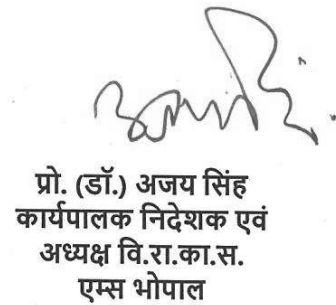 प्रो. (डॉ.) अजय सिंह
कार्यपालक निदेशक एवं
अध्यक्ष वि.रा.का.स.
एम्स भोपाल